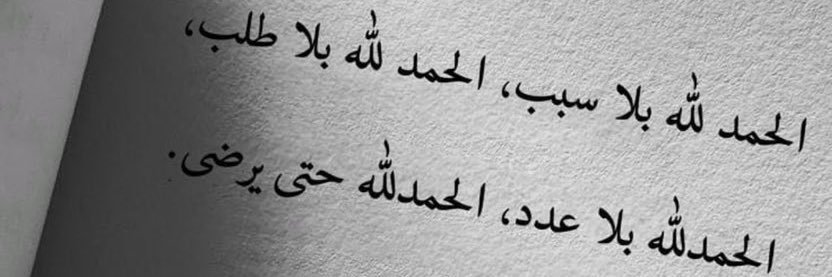 الحمد لله بلا سبب، الحمد لله بلا طلب،
الحمدلله بلا عدد، الحمدلله حتى يرضى.